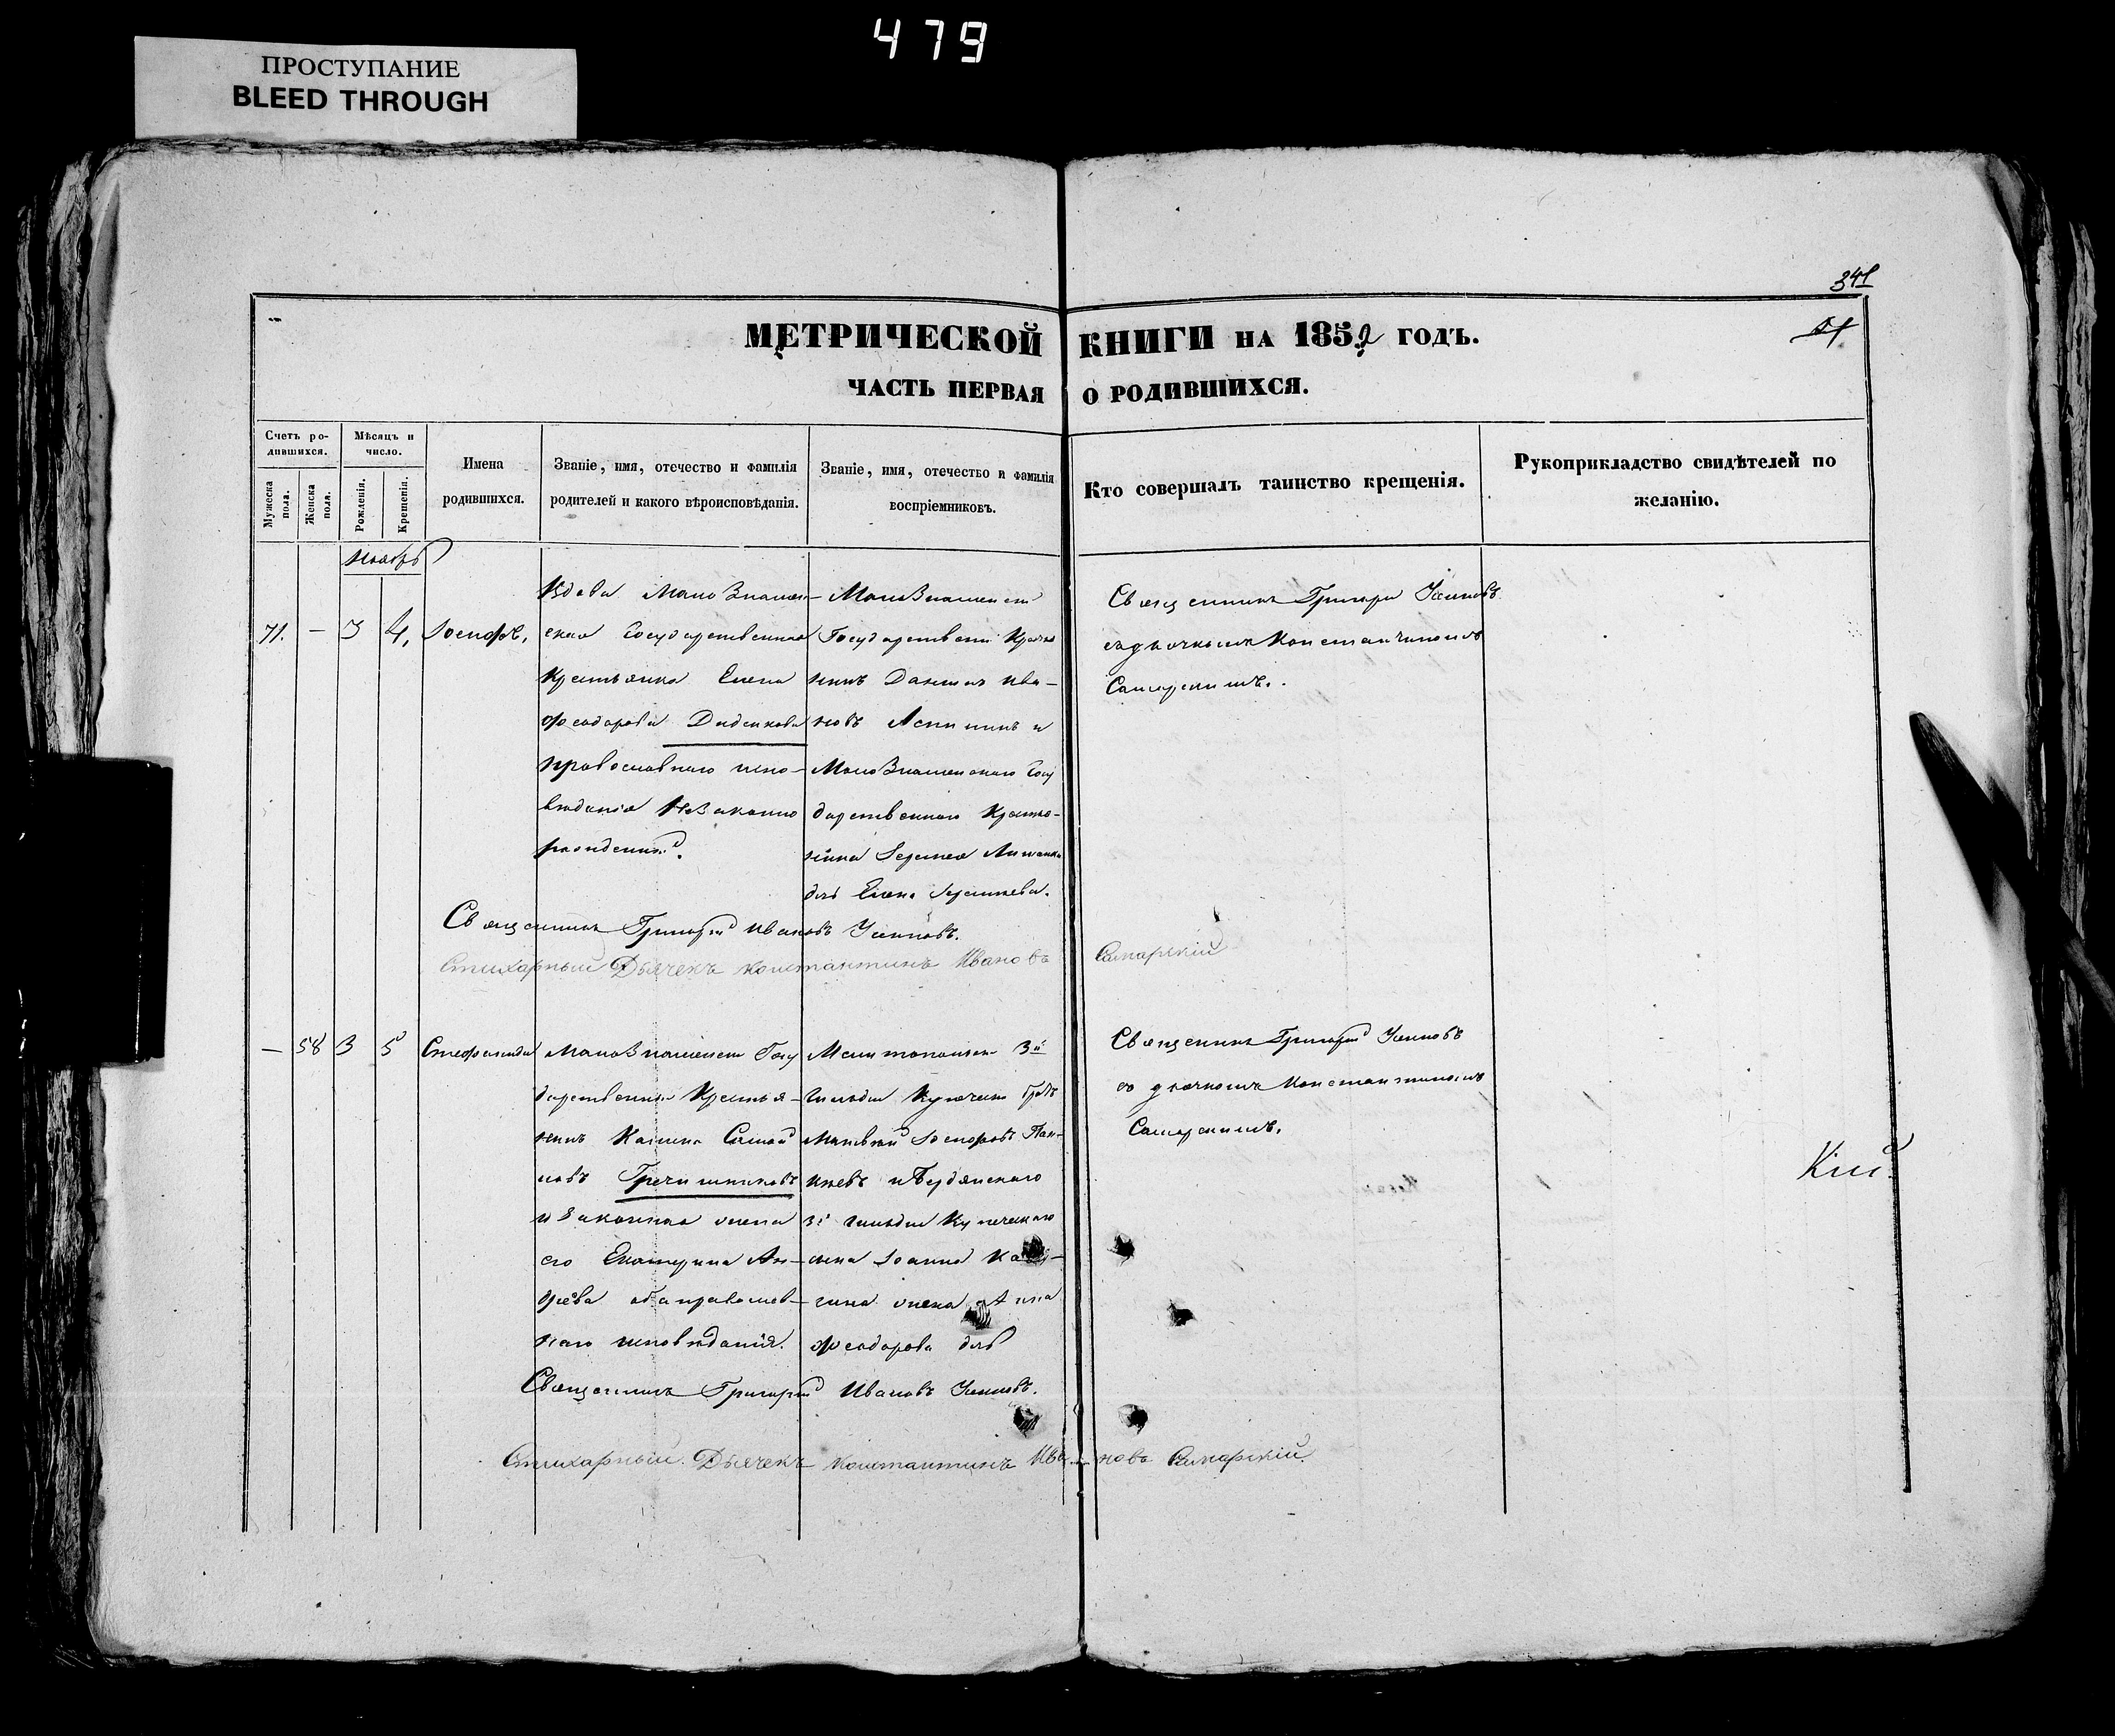 479
ПРОСТУПАНИЕ
BLEED THROUGH
341
МЕТРИЧЕСКОЙ КНИГИ НА 1852 ГОДЪ.
ЧАСТЬ ПЕРВАЯ О РОДИВШИХСЯ.
Счетъ ро-
дившихся.
Мужеска пола.
Женска пола.
Мѣсяцъ и
число.
Рожденія.
Крещенія.
Имена
родившихся.
Званіе, имя, отечество и фамилія
родителей и какого вѣроисповѣданія.
Званіе, имя, отечество и фамилія
воспріемниковъ.
Кто совершалъ таинство крещенія.
Рукоприкладство свидѣтелей по
желанію.
Ноябрь
71. — 3 4, Іосифъ,
Вдова МалоЗнамен-
ская Государственная
Крестьянка Елена
Феодорова Дидикова
православнаго испо-
вѣданія НеЗаконно
рожденный.
МалоЗнаменск
Государственн Крестья
нинъ Даниилъ Ива-
новъ и
МалоЗнаменскаго Госу
дарственнаго Крестья-
нина
дочь Елена
Священникъ Григорій
съ дьячкомъ Константиномъ
Самарскимъ.
Священникъ Григорій Ивановъ
Стихарный Дьячекъ Константинъ Ивановъ Самарскій
— 58 3 5 Стефанида
МалоЗнаменск Госу
дарственный Крестья-
нинъ
новъ Гречишниковъ
и Законная жена
его Екатерина Ан-
дреева оба православ-
наго исповѣданія.
Мелитопольск 3й
гильдіи Купеческ братъ
Матвѣй Іосифовъ
и Бердянскаго
3й гильдіи Купеческаго
сына Іоанна
жена Анна
Феодорова дочь
Священникъ Григорій
съ дьячкомъ Константиномъ
Самарскимъ.
Кій
Священникъ Григорій Ивановъ
Стихарный Дьячекъ Константинъ Ивановъ Самарскій